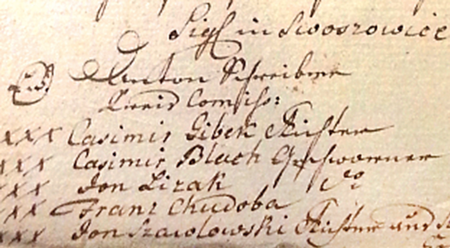 Sigl in Swoszowice
L.S. Anton Schreibme
Kreis Comiss:
XXX Casimir Gibek Richter
XXX Casimir Blach Geschworner
XXX Jon Lizak do
XXX Franz Chudoba
XXX Jon Szawlowski Richter und